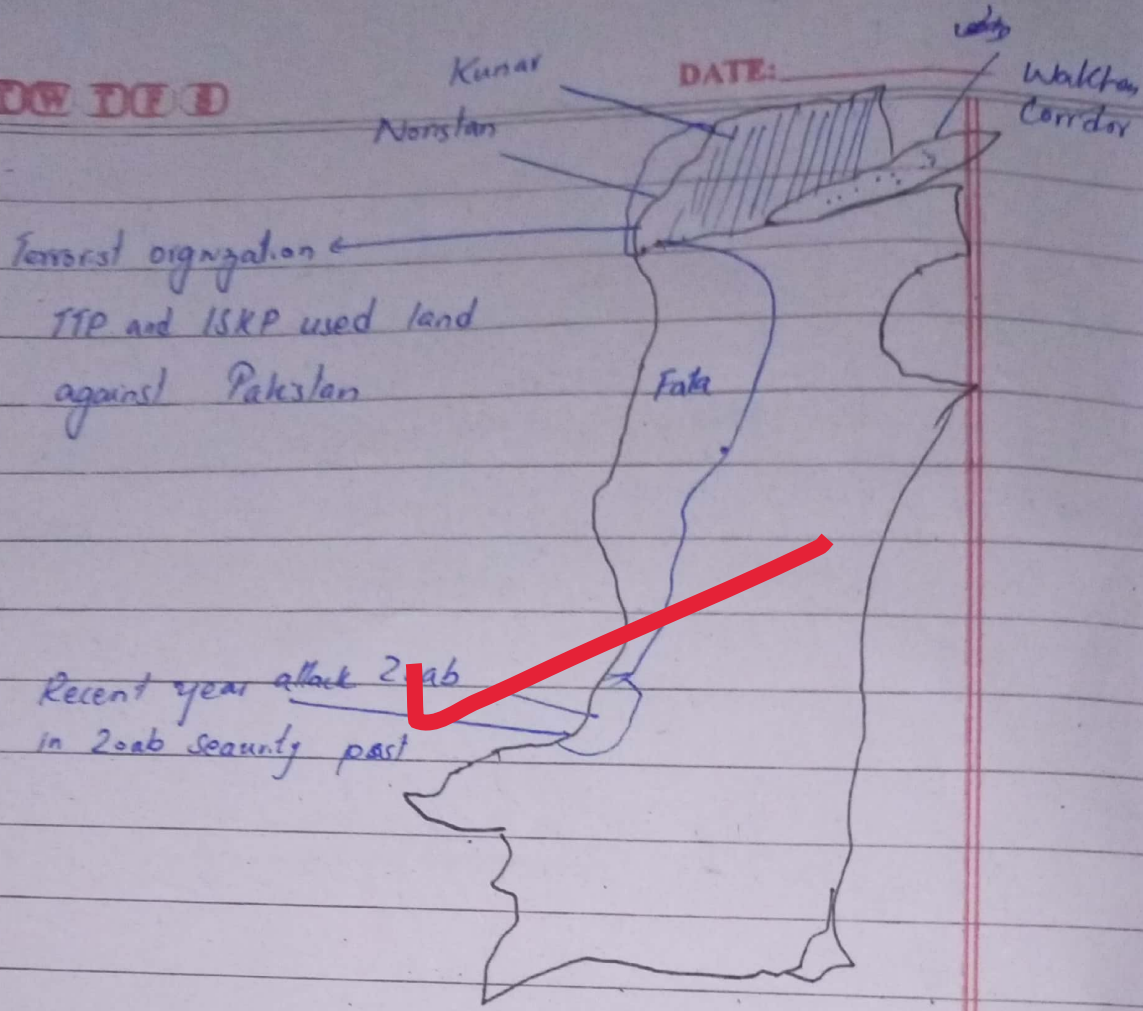 DATE:
Kunar
Noristan
Corridor
Terrorist orgnzation
TTP and ISKP used land
against Pakistan
Fata
Recent year attack Zoab
in Zoab security post